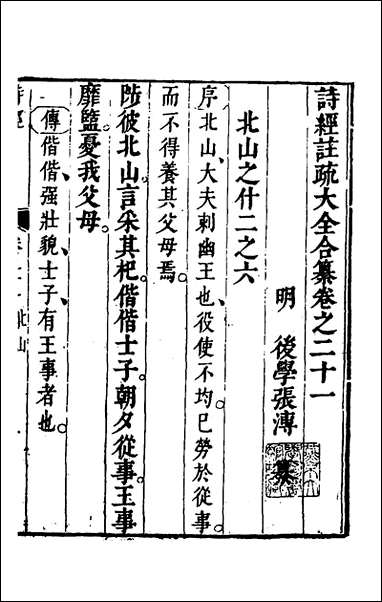 詩經註疏大全合纂卷之二十一
明　後學張溥纂
北山之什二之六
序北山、大夫刺幽王也、役使不均、巳勞於從事。
而不得養其父母焉。
陟彼北山。言采其杞。偕偕士子。朝夕從事。王事
靡盬。憂我父母。
傳偕偕、强壯貌、士子、有王事者也。